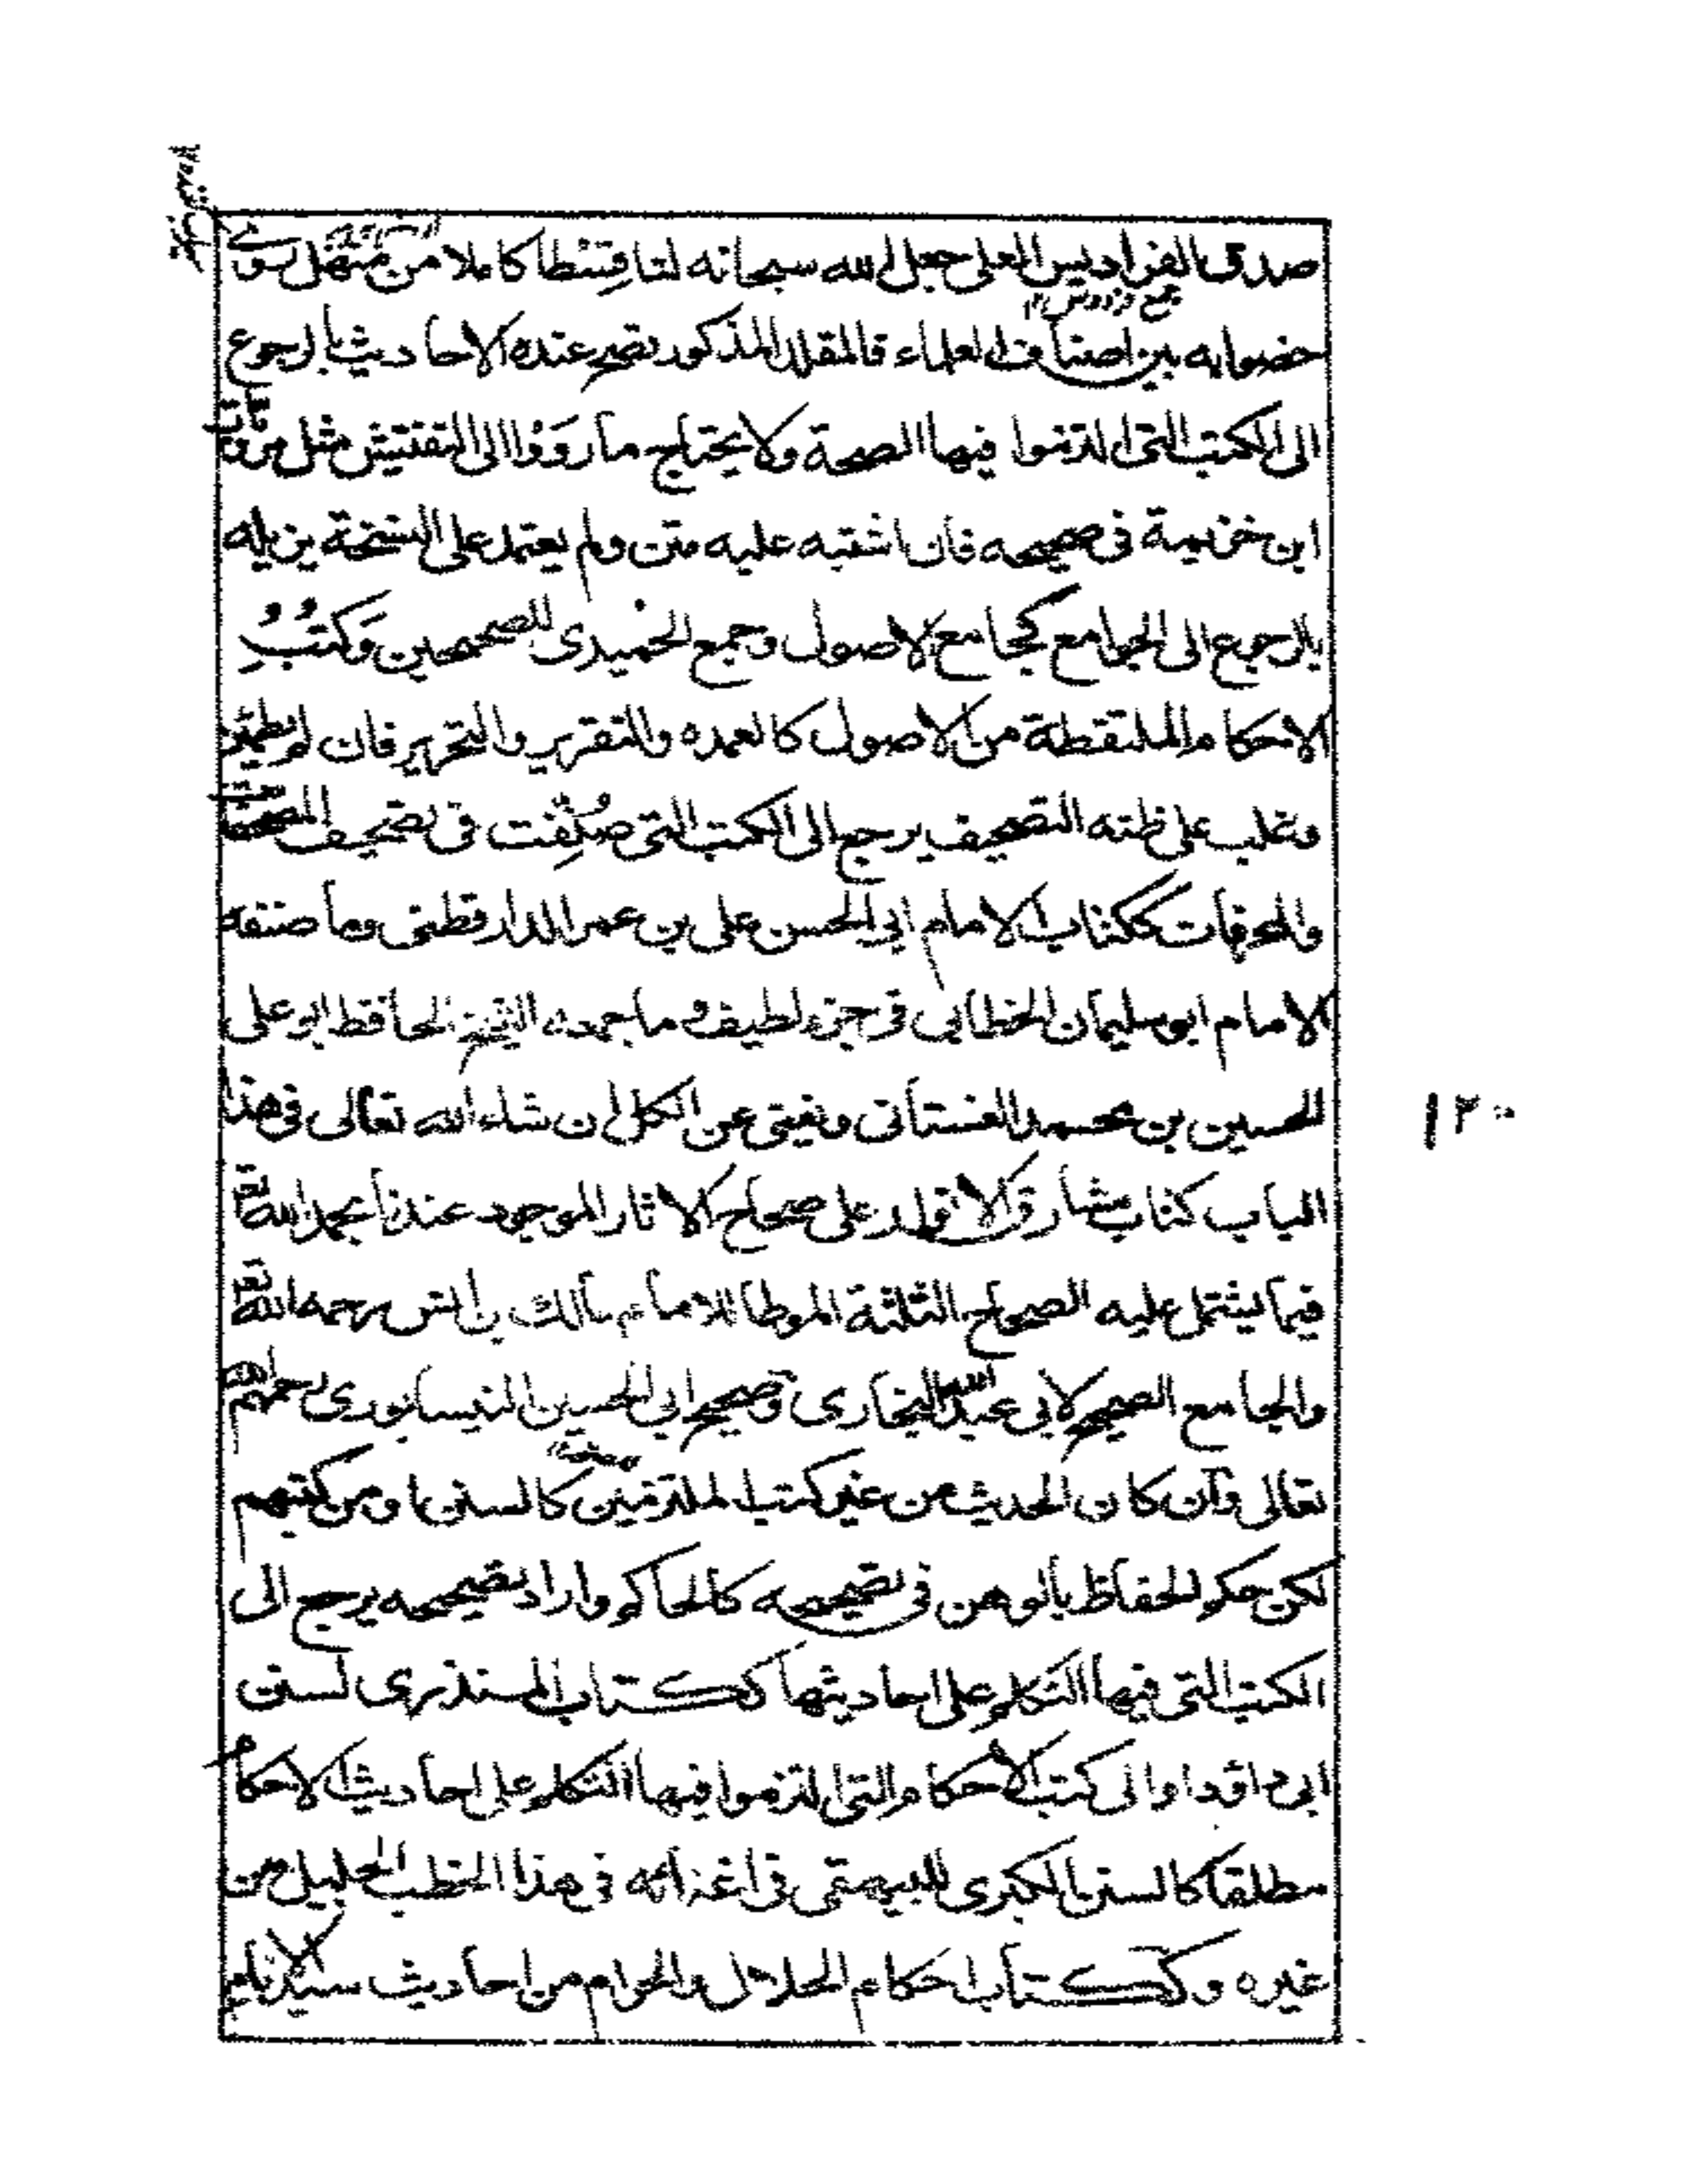 صدق الفراديس العلى جعل الله سبحانه لنا قِسْطا كاملا من مَنْهَل
جمع فردوس ١٢
بين اصناف العلماء فالمقلد المذكور تصح عنده الاحاديث بالرجوع
الى الكتب التى التزموا فيها الصحة ولا يحتاج ما رَوَوْا الى التفتيش مثل
ابن خزيمة فى صحيحه فان اشتبه عليه متن ولم يعتمد على النسخة يزيله
بالرجوع الى الجوامع كجامع الاصول وجمع الحُميدى للصحيحين وَكُتُبُ
الاحكام الملتقطة من الاصول كالعمده والتقرير والتحرير فان لم يطمئن
وغلب على ظنه التصحيف يرجع الى الكتب التى صُنِّفت فى تصحيف
والمحرفات ككتاب الامام ابى الحسن على بن عمر الدارقطنى وما صنفه
الامام ابو سليمان الخطابى فى جزء لطيف وما جمعه الشيخ الحافظ ابو على
الحسين بن محمد الغستانى ويغنى عن الكل ان شاء الله تعالى فى هذا
الباب كتاب مشارق الانوار على صحاح الاثار الموجود عندنا بحمد الله تع
فيما يشتمل عليه الصحاح الثلثة الموطا للامام مالك بن انس رحمه الله تع
والجامع الصحيح لابى عبد الله البخارى وصحيح ابى الحسين النيسابورى رحمهم الله
تعالى وان كان الحديث من غير كتب الملتزمين كالسنن او من كتبهم
لكن حكم الحفاظ بالوهن فى تصحيحه كالحاكم واراد تصحيحه يرجع الى
الكتب التى فيها التكلم على احاديثها ككتاب المنذرى لسنن
ابى داؤد او الى كتب الاحكام التى التزموا فيها التكلم على احاديث الاحكام
مطلقا كالسنن الكبرى للبيهقى فى هذا الخطب الجليل من
غيره وككتاب احكام الحلال والحرام من احاديث سيد الانام
١٢٠